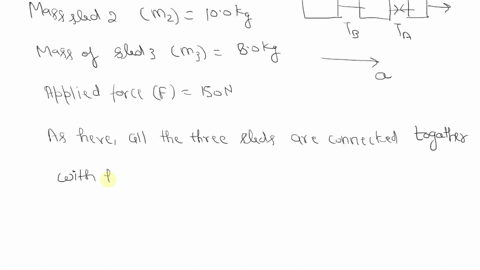 Mass sled 2 (m₂) = 10.0 kg
T_B T_A
Mass of sled 3 (m₃) = 8.0 kg
a
Applied force (F) = 150N
As here, all the three sleds are connected togather
with